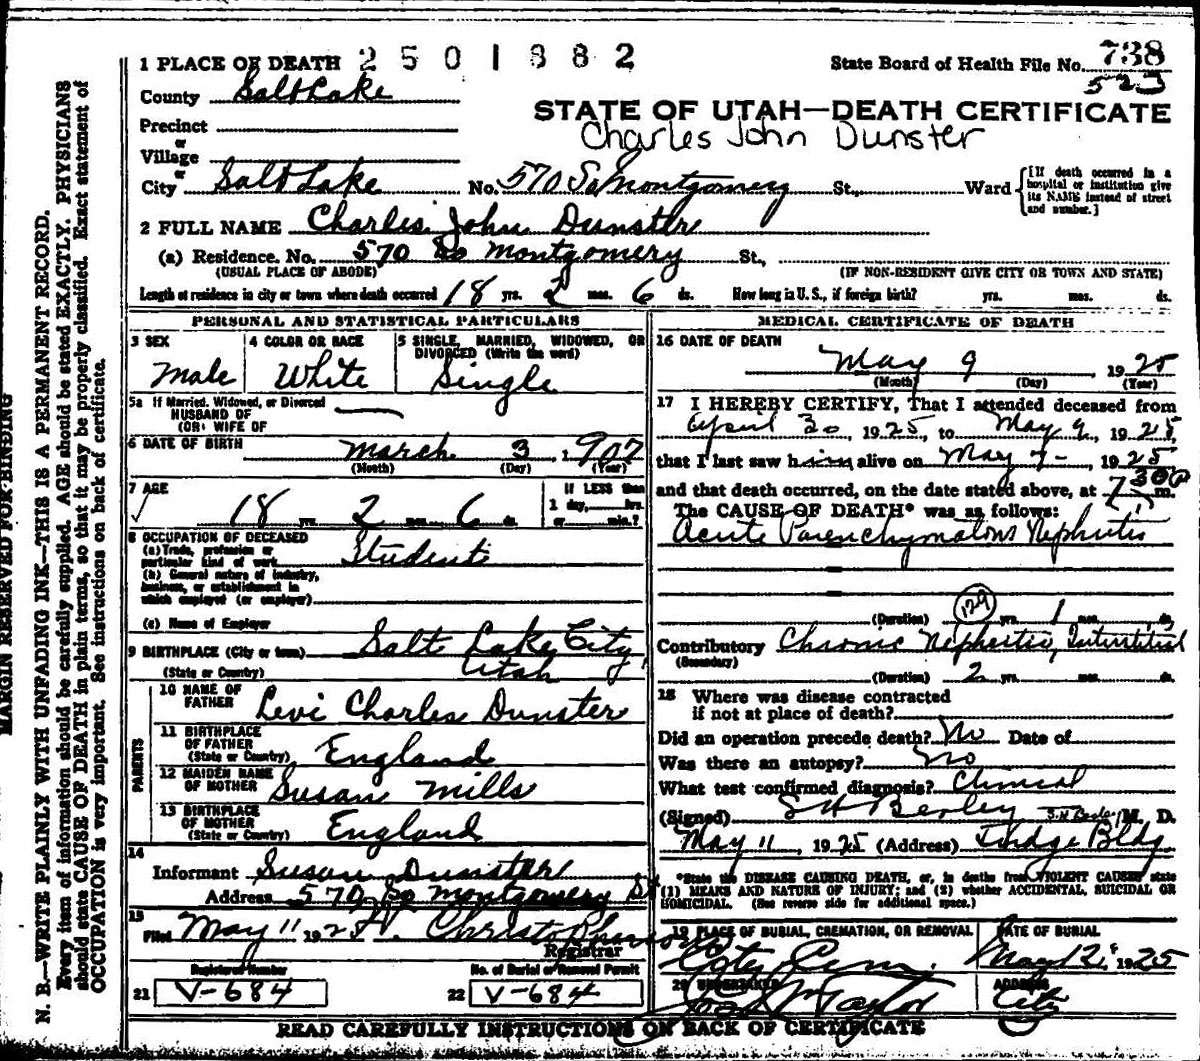 1 PLACE OF DEATH 2501882
State Board of Health File No. 738
523
County Salt Lake
STATE OF UTAH—DEATH CERTIFICATE
Precinct
Charles John Dunster
or
Village
or
City Salt Lake No. 570 So Montgomery St., Ward
[If death occurred in a hospital or institution give its NAME instead of street and number.]
2 FULL NAME Charles John Dunster
(a) Residence. No. 570 So Montgomery St.,
(USUAL PLACE OF ABODE) (IF NON-RESIDENT GIVE CITY OR TOWN AND STATE)
Length of residence in city or town where death occurred 18 yrs. 2 mos. 6 ds. How long in U. S., if foreign birth? yrs. mos. ds.
MARGIN RESERVED FOR BINDING
N. B.—WRITE PLAINLY WITH UNFADING INK—THIS IS A PERMANENT RECORD.
Every item of information should be carefully supplied. AGE should be stated EXACTLY. PHYSICIANS
should state CAUSE OF DEATH in plain terms, so that it may be properly classified. Exact statement of
OCCUPATION is very important. See instructions on back of certificate.
PERSONAL AND STATISTICAL PARTICULARS
3 SEX
Male
4 COLOR OR RACE
White
5 SINGLE, MARRIED, WIDOWED, OR
DIVORCED (Write the word)
Single
5a If Married, Widowed, or Divorced
HUSBAND OF
(OR) WIFE OF
6 DATE OF BIRTH March 3 1907
(Month) (Day) (Year)
7 AGE
18 yrs. 2 mos. 6 ds.
If LESS than
1 day, hrs.
or min.?
8 OCCUPATION OF DECEASED
(a) Trade, profession or
particular kind of work Student
(b) General nature of industry,
business, or establishment in
which employed (or employer)
(c) Name of Employer
9 BIRTHPLACE (City or town) Salt Lake City
(State or Country) Utah
PARENTS
10 NAME OF
FATHER Levi Charles Dunster
11 BIRTHPLACE
OF FATHER
(State or Country) England
12 MAIDEN NAME
OF MOTHER Susan Mills
13 BIRTHPLACE
OF MOTHER
(State or Country) England
14
Informant Susan Dunster
Address 570 So Montgomery St
15
Filed May 11 1925
Registrar
Registered Number
21 V-684
No. of Burial or Removal Permit
22 V-684
MEDICAL CERTIFICATE OF DEATH
16 DATE OF DEATH
May 9 1925
(Month) (Day) (Year)
17 I HEREBY CERTIFY, That I attended deceased from
April 30, 1925, to May 9, 1925,
that I last saw him alive on May 9 1925
and that death occurred, on the date stated above, at 7 30 P m.
The CAUSE OF DEATH* was as follows:
Acute Parenchymatous Nephritis
129
(Duration) yrs. 1 mos. ds.
Contributory Chronic Nephritis, Interstitial
(Secondary)
(Duration) 2 yrs. mos. ds.
18 Where was disease contracted
if not at place of death?
Did an operation precede death? No Date of
Was there an autopsy? No
What test confirmed diagnosis? Clinical
(Signed) M. D.
May 11, 1925 (Address) Judge Bldg.
*State the DISEASE CAUSING DEATH, or, in deaths from VIOLENT CAUSES state
(1) MEANS AND NATURE OF INJURY; and (2) whether ACCIDENTAL, SUICIDAL OR
HOMICIDAL. (See reverse side for additional space.)
19 PLACE OF BURIAL, CREMATION, OR REMOVAL
City Cem.
DATE OF BURIAL
May 12, 1925
20 UNDERTAKER
Taylor
ADDRESS
City
READ CAREFULLY INSTRUCTIONS ON BACK OF CERTIFICATE